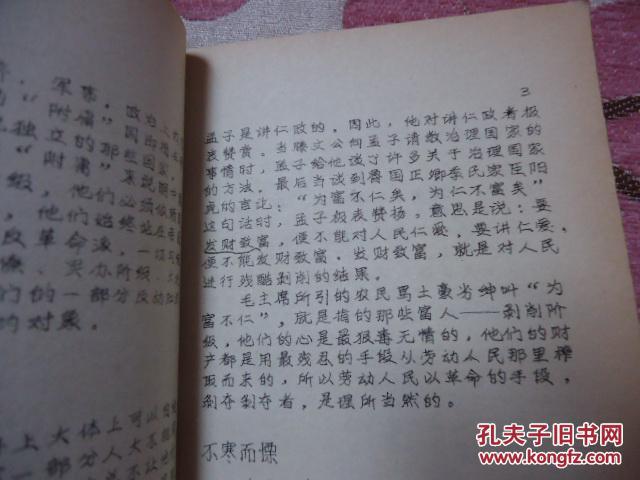 军事，政治上
"附庸"
独立的那些国家，
"附庸"来说明
级，他们必须依
，他们始终站在
改革命派，一
买办阶级、
们的一部分反动
的对象。
上大体上可以
一部分人大
3
孟子是讲仁政的，因此，他对讲仁政者极
表赞赏。当滕文公向孟子请教治理国家的
事情时，孟子给他谈了许多关于治理国家
的方法。最后当谈到鲁国正卿季氏家臣阳
虎的言论："为富不仁矣，为仁不富矣"
这句话时，孟子极表赞扬。意思是说：要
发财致富，便不能对人民仁爱，要讲仁爱，
便不能发财致富。发财致富，就是对人民
进行残酷剥削的结果。
毛主席所引的农民骂土豪劣绅叫"为
富不仁"，就是指的那些富人——剥削阶
级，他们的心是最狠毒无情的，他们的财
产都是用最残忍的手段从劳动人民那里榨
取而来的，所以劳动人民以革命的手段，
剥夺剥夺者，是理所当然的。
不寒而慄
孔夫子旧书网